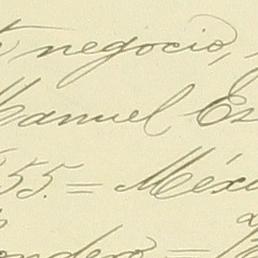 negocio,
Manuel Es
55. = Méxi
ondero =